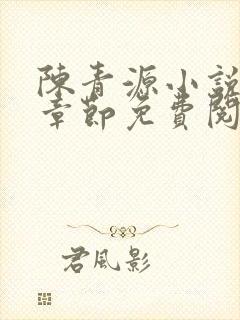 陳青源小說
章節免費閱
君風影